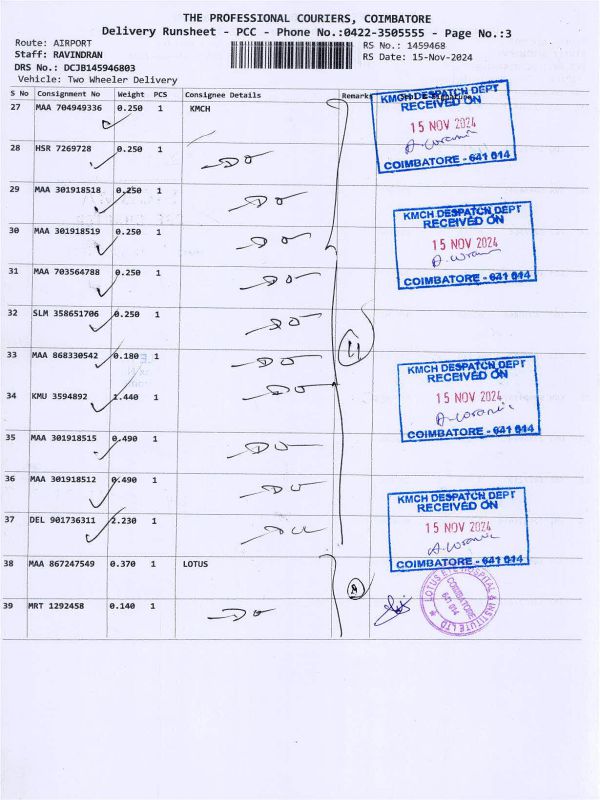 THE PROFESSIONAL COURIERS, COIMBATORE
Delivery Runsheet - PCC - Phone No.:0422-3505555 - Page No.:3
Route: AIRPORT
Staff: RAVINDRAN
DRS No.: DCJB145946803
Vehicle: Two Wheeler Delivery
RS No.: 1459468
RS Date: 15-Nov-2024
S No Consignment No Weight PCS Consignee Details Remarks Signature
27 MAA 704949336 0.250 1 KMCH
28 HSR 7269728 0.250 1 DO
29 MAA 301918518 0.250 1 DO
30 MAA 301918519 0.250 1 DO
31 MAA 703564788 0.250 1 DO
32 SLM 358651706 0.250 1 DO
33 MAA 868330542 0.180 1 DO
34 KMU 3594892 1.440 1 DO
35 MAA 301918515 0.490 1 DO
36 MAA 301918512 0.490 1 DO
37 DEL 901736311 2.230 1
38 MAA 867247549 0.370 1 LOTUS
39 MRT 1292458 0.140 1 DO
KMCH DESPATCH DEPT
RECEIVED ON
15 NOV 2024
COIMBATORE - 641 014
KMCH DESPATCH DEPT
RECEIVED ON
15 NOV 2024
COIMBATORE - 641 014
KMCH DESPATCH DEPT
RECEIVED ON
15 NOV 2024
COIMBATORE - 641 014
KMCH DESPATCH DEPT
RECEIVED ON
15 NOV 2024
COIMBATORE - 641 014
LOTUS EYE HOSPITAL & INSTITUTE LTD
COIMBATORE
641 014